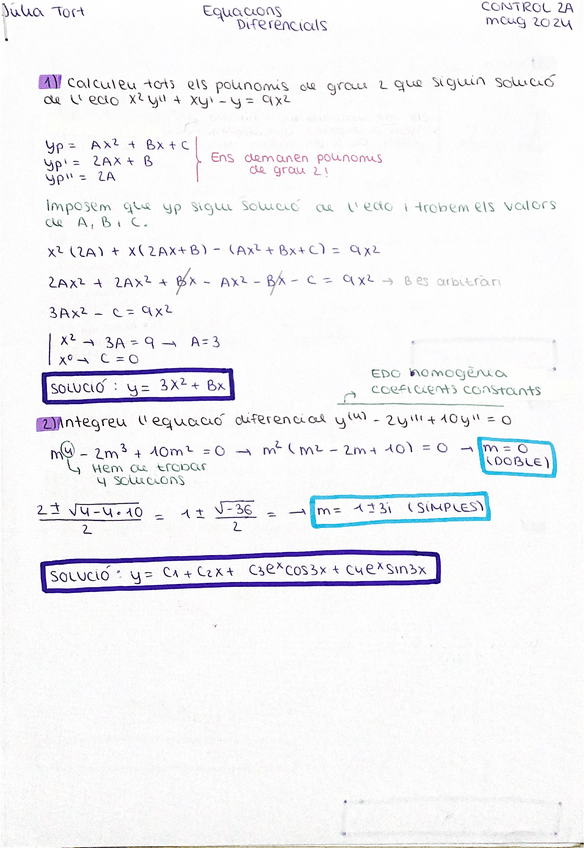 Júlia Tort
Equacions
Diferencials
CONTROL 2A
maig 2024
1) Calculeu tots els polinomis de grau 2 que siguin solució
de l'edo x²y'' + xy' - y = 9x²
yp = Ax² + Bx + C
yp' = 2Ax + B
yp'' = 2A
Ens demanen polinomis
de grau 2!
Imposem que yp sigui solució de l'edo i trobem els valors
de A, B i C.
x²(2A) + x(2Ax+B) - (Ax²+Bx+C) = 9x²
2Ax² + 2Ax² + Bx - Ax² - Bx - C = 9x² → B és arbitrari
3Ax² - C = 9x²
x² → 3A = 9 → A=3
x⁰ → C = 0
SOLUCIÓ: y = 3x² + Bx
EDO homogènia
coeficients constants
2) Integreu l'equació diferencial y⁽⁴⁾ - 2y''' + 10y'' = 0
m⁴ - 2m³ + 10m² = 0 → m²(m² - 2m + 10) = 0 → m = 0
(DOBLE)
↳ Hem de trobar
4 solucions
2 ± √4-4·10 / 2 = 1 ± √-36 / 2 = → m = 1 ± 3i (SIMPLES)
SOLUCIÓ: y = C1 + C2x + C3eˣcos3x + C4eˣsin3x